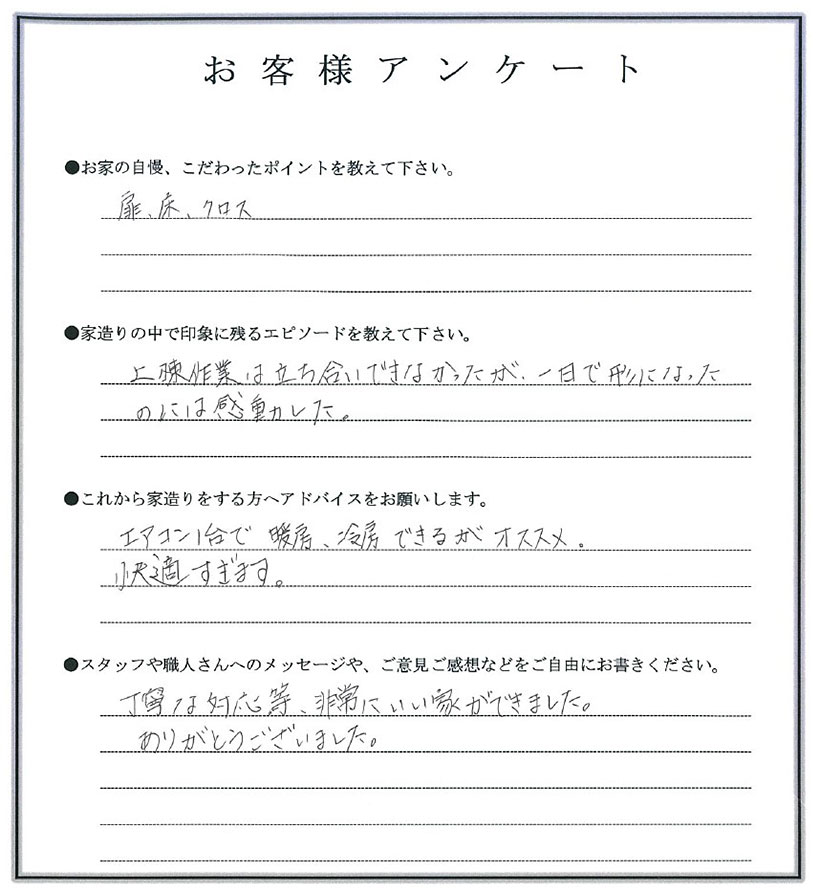 お客様アンケート
●お家の自慢、こだわったポイントを教えて下さい。
扉、床、クロス
●家造りの中で印象に残るエピソードを教えて下さい。
上棟作業は立ち合いできなかったが、一日で形になった
のには感動した。
●これから家造りをする方へアドバイスをお願いします。
エアコン1台で暖房、冷房できるがオススメ。
快適すぎます。
●スタッフや職人さんへのメッセージや、ご意見ご感想などをご自由にお書きください。
丁寧な対応等、非常にいい家ができました。
ありがとうございました。